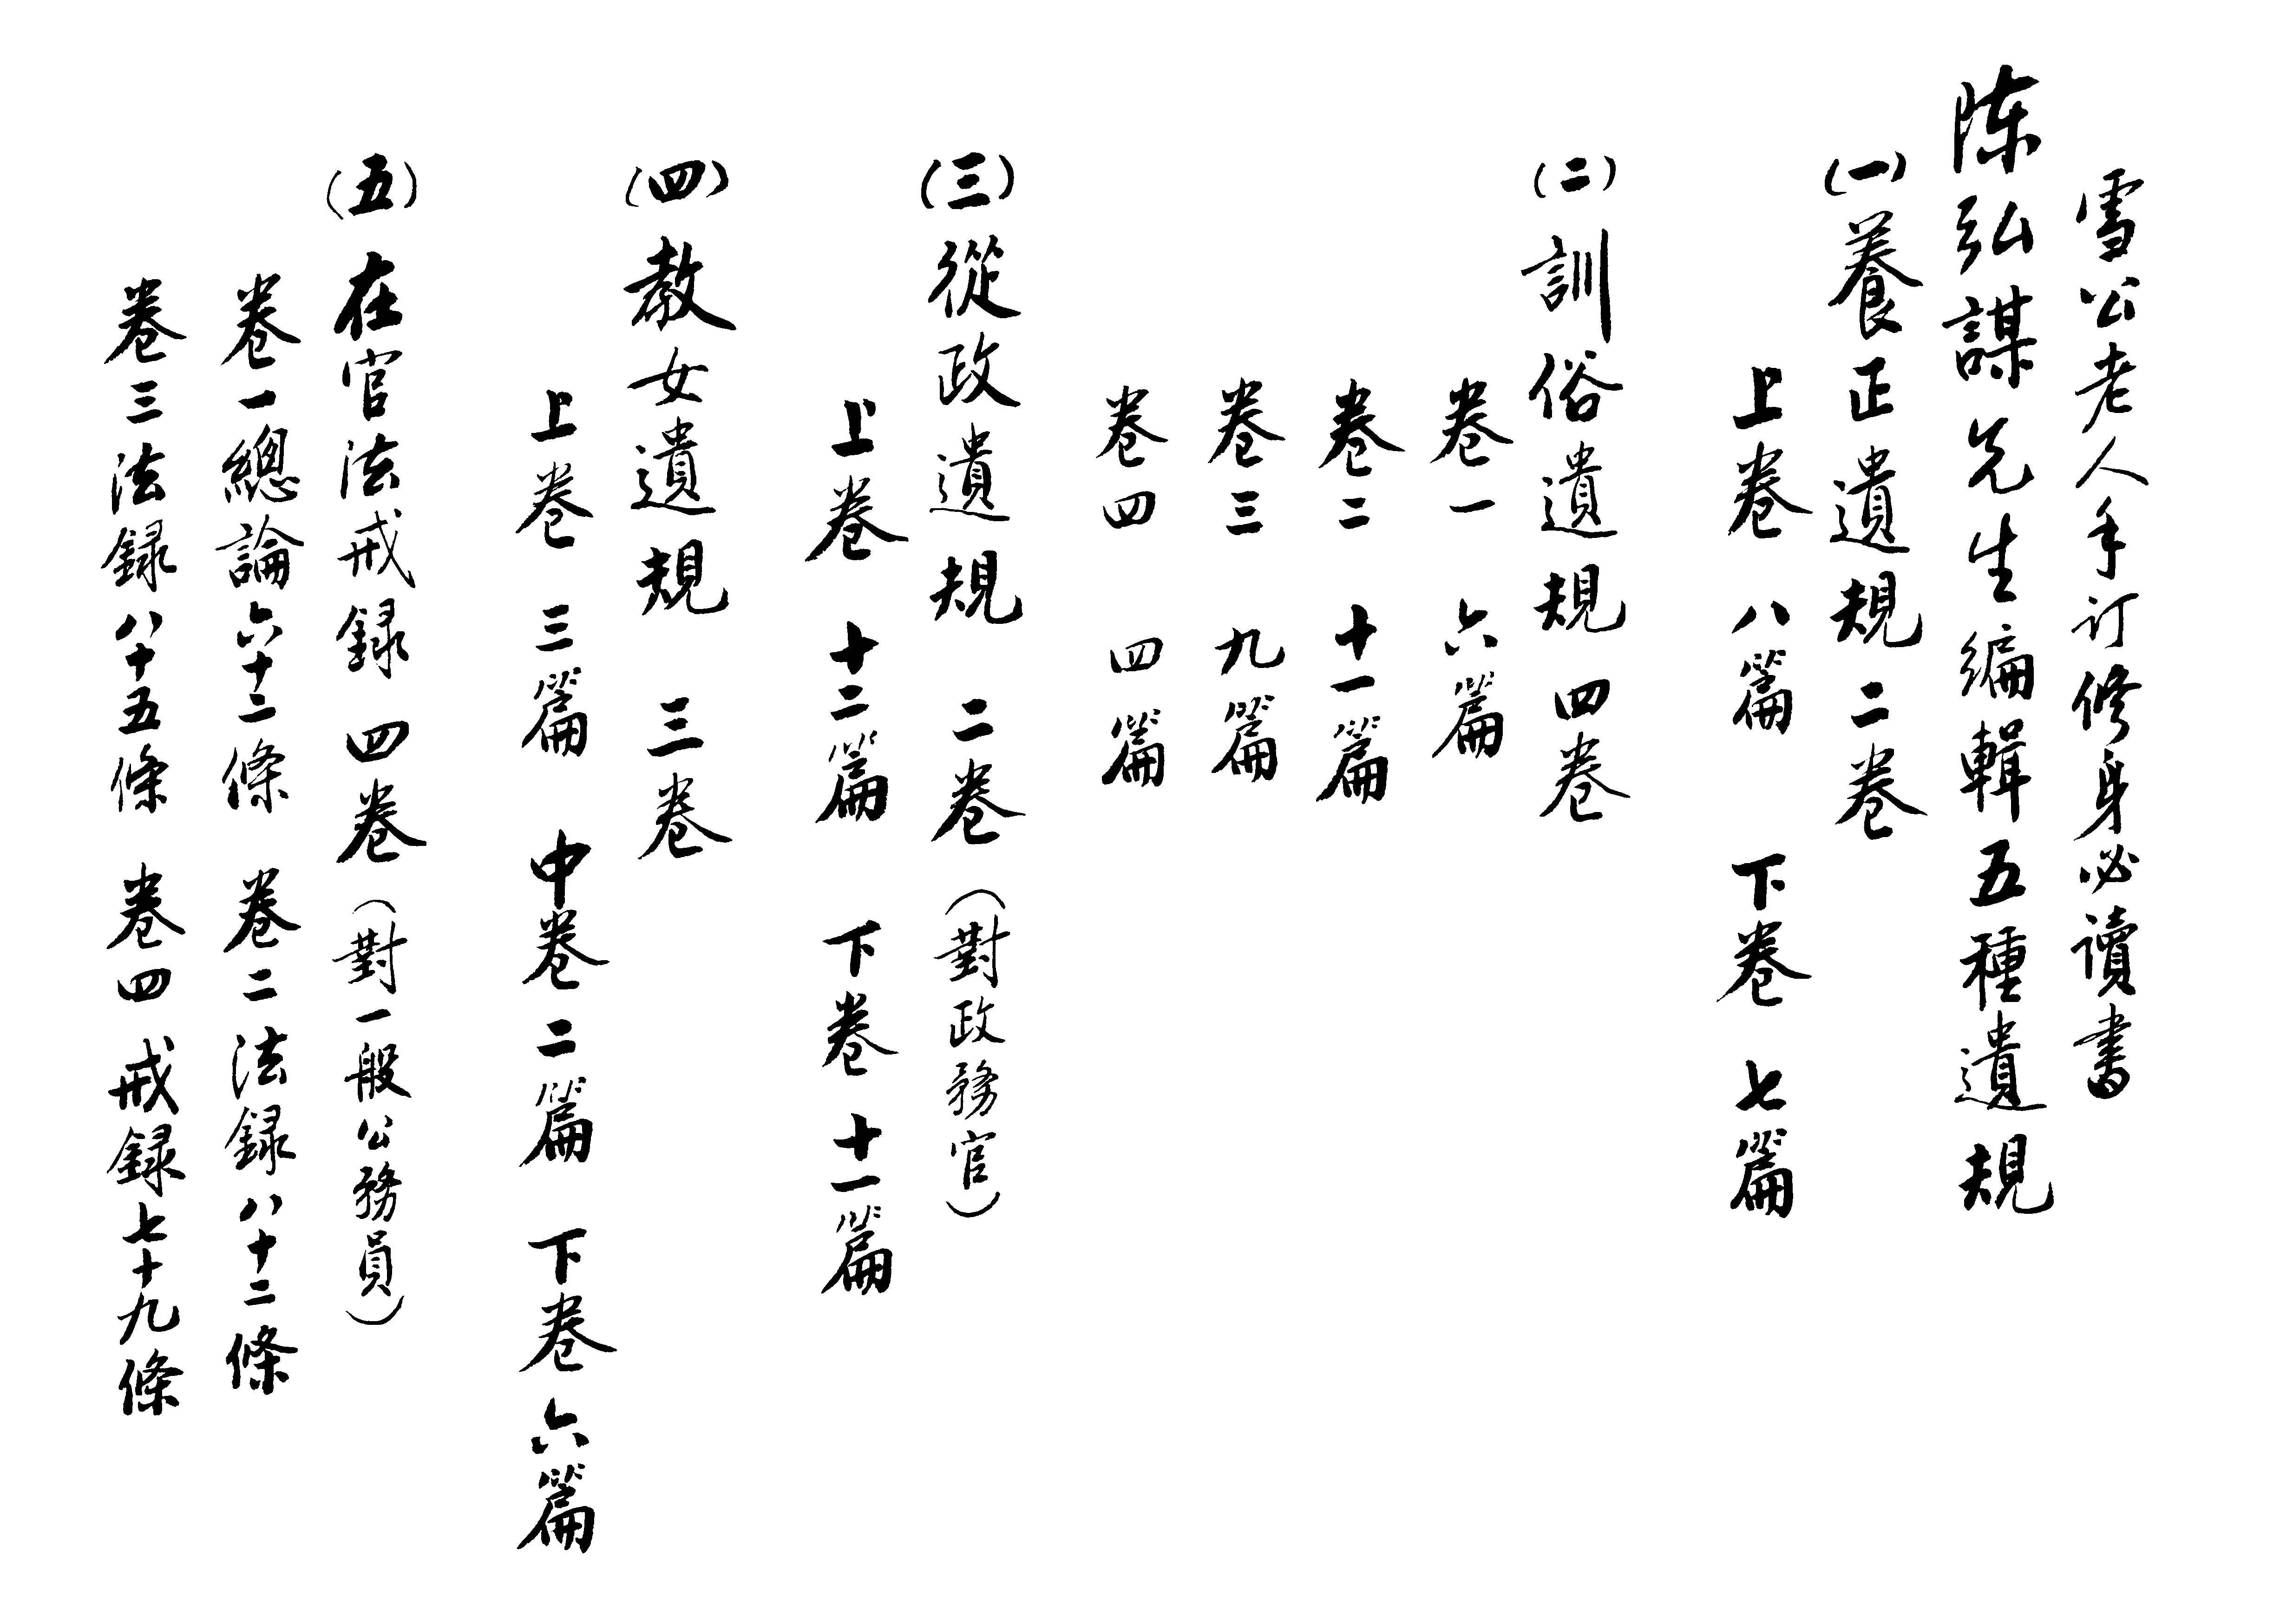 雪公老人手订修身必讀書
陈弘謀先生編輯五種遺規
(一)養正遺規 二卷
上卷 八篇 下卷 七篇
(二)訓俗遺規 四卷
卷一 六篇
卷二 十一篇
卷三 九篇
卷四 四篇
(三)從政遺規 二卷(對政務官)
上卷 十二篇 下卷 十一篇
(四)教女遺規 三卷
上卷 三篇 中卷 二篇 下卷 六篇
(五)在官法戒録 四卷(對一般公務員)
卷一總論六十二條 卷二法録八十二條
卷三法録八十五條 卷四戒録七十九條